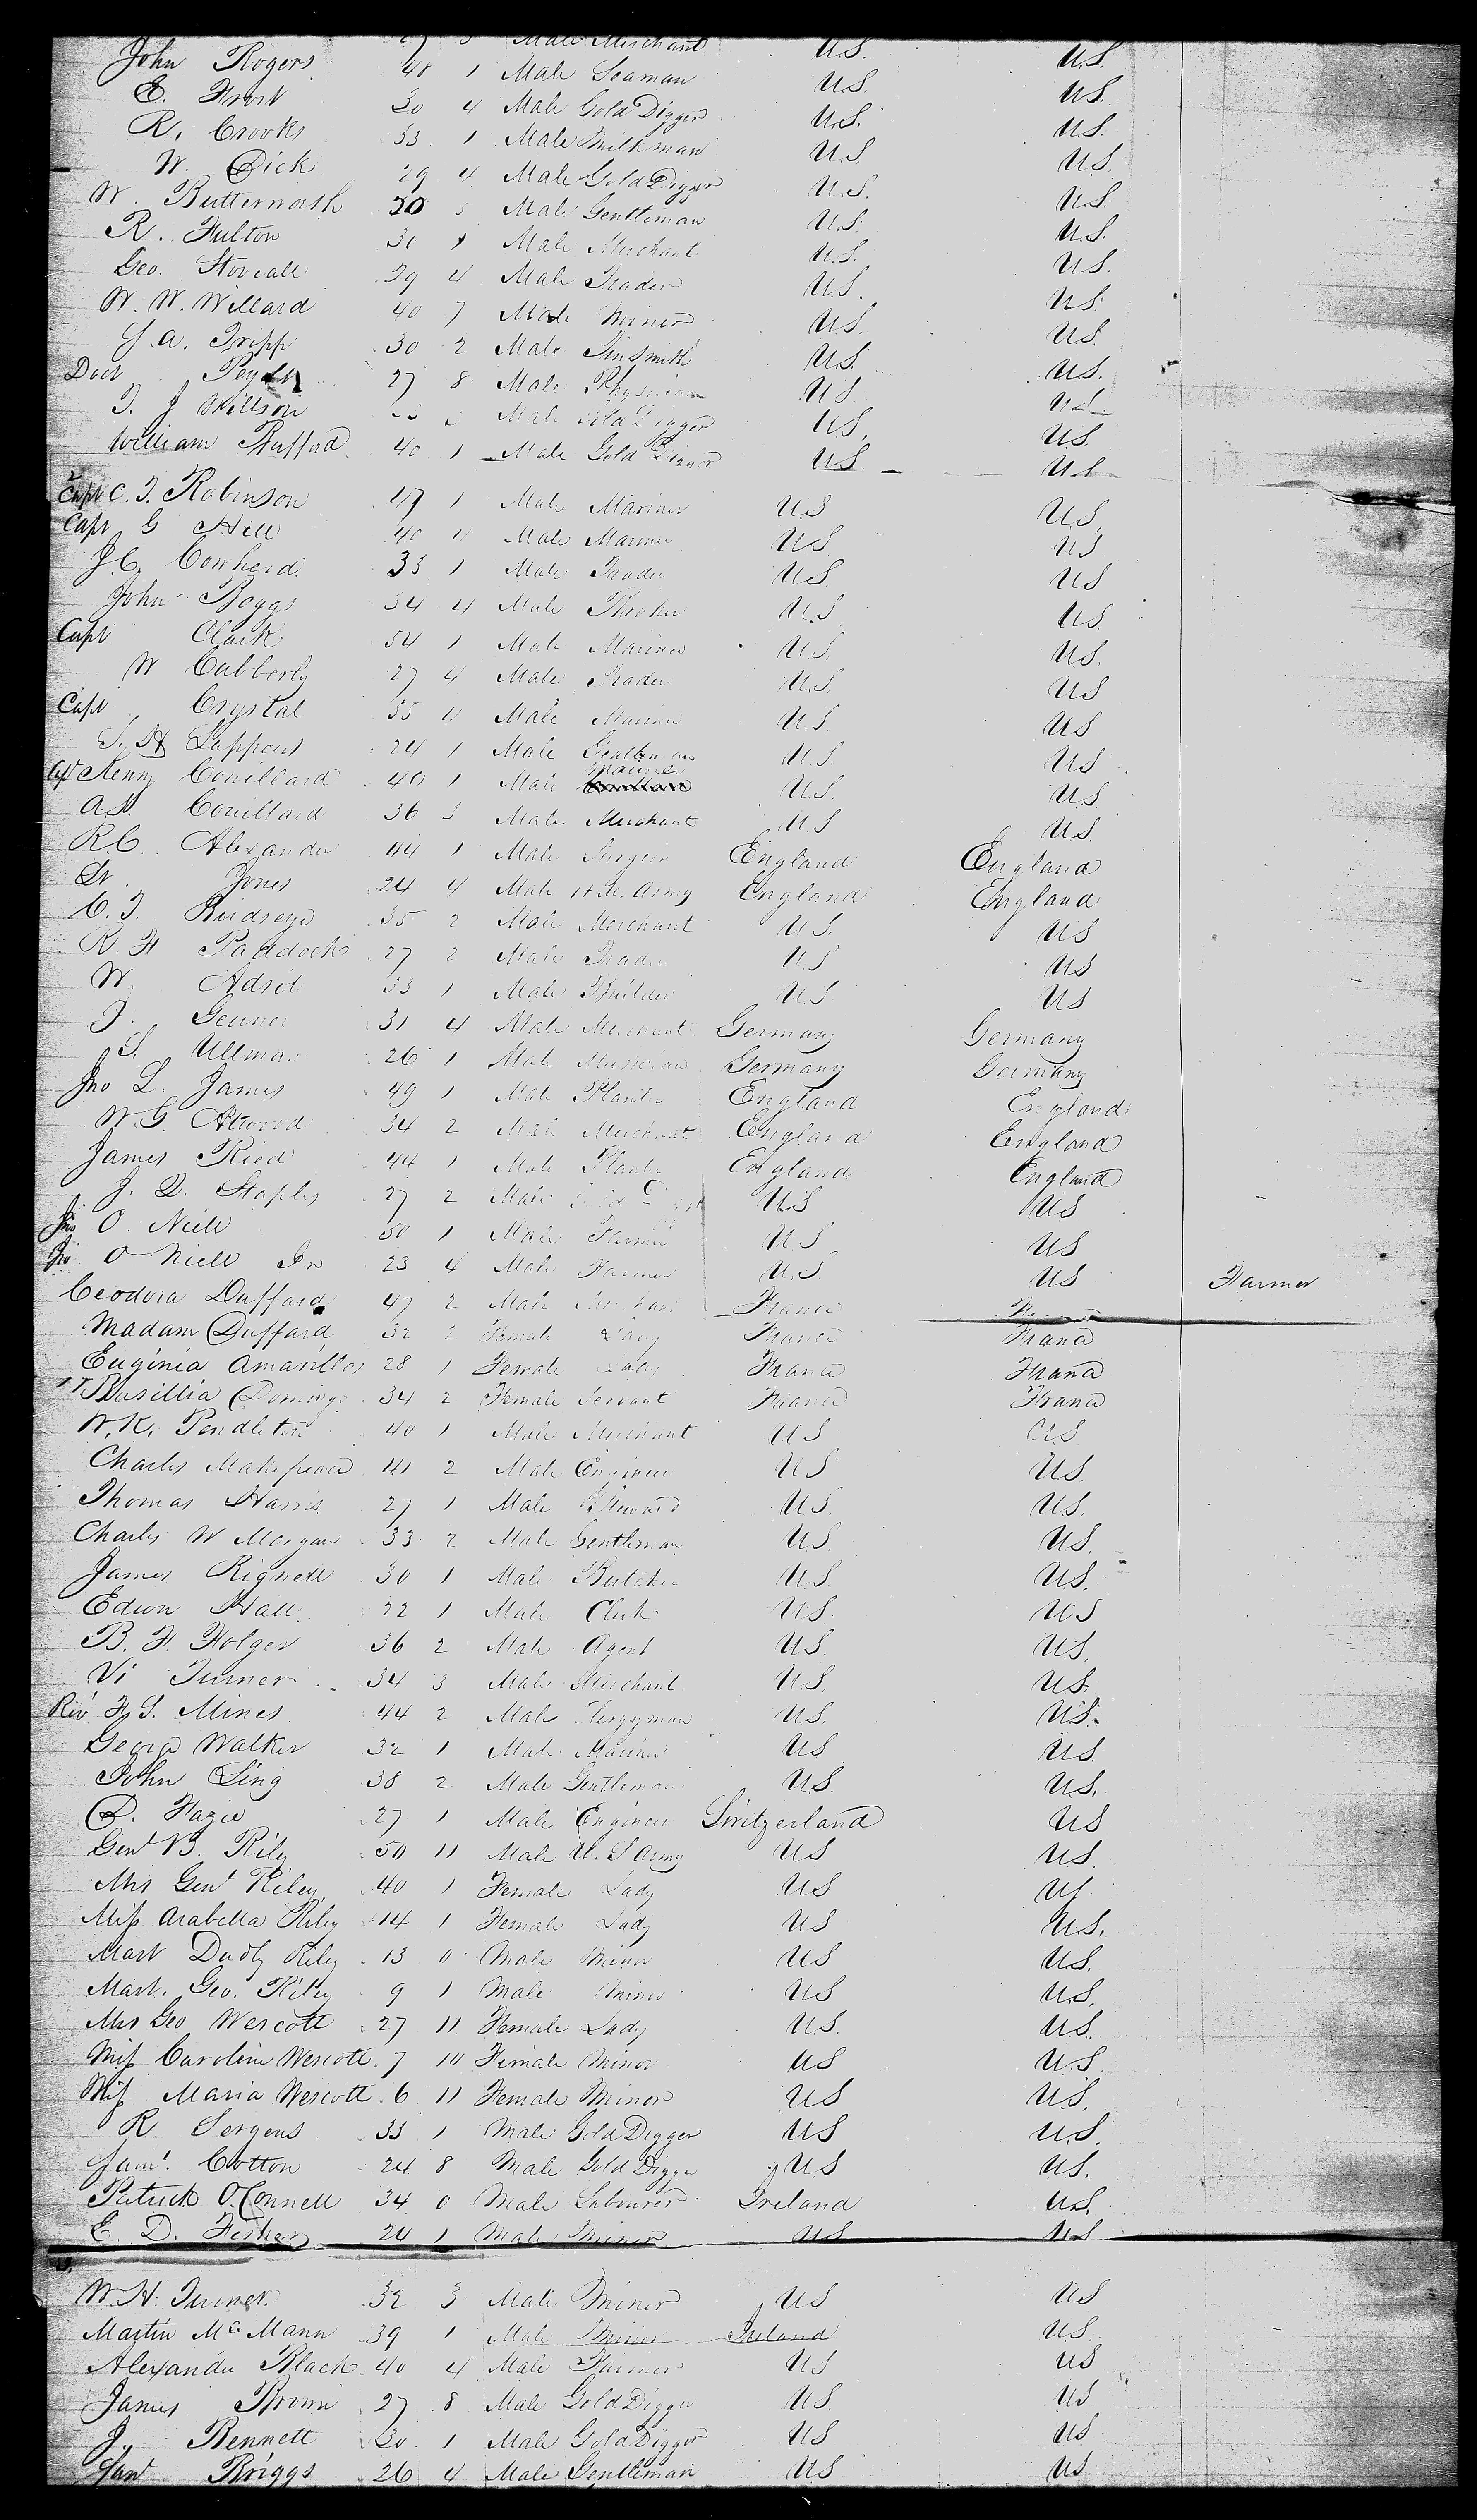 27 3 Male Merchant U.S. U.S.
John Rogers 48 1 Male Seaman U.S. U.S.
E. Frost 30 4 Male Gold Digger U.S. U.S.
R. Crooks 33 1 Male Milkman U.S. U.S.
W. Dick 29 4 Male Gold Digger U.S. U.S.
W. Butterworth 30 Male Gentleman U.S. U.S.
R. Fulton 31 Male Merchant U.S. U.S.
Geo. Stoveall 29 4 Male Trader U.S. U.S.
W. W. Willard 40 7 Male U.S. U.S.
Tripp 30 2 Male Tinsmith U.S. U.S.
Doct 27 8 Male Physician U.S U.S
T. J Willson Male Gold Digger U.S. U.S.
William Bufford 40 1 Male Gold Digger U.S. U.S
Capt C. T. Robinson 47 1 Male Mariner U.S U.S.
Capt G Hill 40 Male Mariner U.S. U.S
J. C. Cowherd 33 1 Male Trader U.S. U.S
John Boggs 34 4 Male Broker U.S U.S.
Capt Clark 54 1 Male Mariner U.S U.S.
W Cubberly 27 4 Male Trader U.S. U.S
Capt Crystal 35 Male Mariner U.S. U.S
24 1 Male Gentleman U.S. U.S
Capt Kenny Couillard 40 1 Male Mariner U.S. U.S
A. Couillard 36 3 Male Merchant U.S U.S.
R C. Alexander 44 1 Male Surgeon England England
Dr. Jones 24 4 Male Army England England
C. T. Birdseye 35 2 Male Merchant U.S. U.S
R. H Paddock 27 2 Male Trader U.S U.S
W. Adsit 33 1 Male Builder U.S U.S
31 4 Male Merchant Germany Germany
S. Ullman 26 1 Male Musician Germany Germany
Jno L. James 49 1 Male Planter England England
W. G. Atwood 34 2 Male Merchant England England
James Ried 44 1 Male Planter England England
J. D. Staples 27 2 Male U.S U.S
Jno O. Niell 50 1 Male Farmer U.S U.S
Jno O Niell Jr 23 4 Male Farmer U.S U.S Farmer
Ceodora Duffard 47 2 Male France
Madam Duffard 32 2 Female Lady France France
Euginia Amarillas 28 1 Female Lady France France
Basillia Domingo 34 2 Female Servant France France
W. K. Pendleton 40 1 Male Merchant U.S U.S
Charles Makepeace 41 2 Male Engineer U.S U.S.
Thomas Harris 27 1 Male Steward U.S. U.S.
Charles W Morgan 33 2 Male Gentleman U.S. U.S.
James Rignell 30 1 Male Butcher U.S. U.S.
Edwin Hall 22 1 Male Clerk U.S. U.S
B. F. Folger 36 2 Male Agent U.S. U.S.
Turner 34 3 Male Merchant U.S. U.S.
Rev F. S. Mines 44 2 Male Clergyman U.S. U.S.
George Walker 32 1 Male Mariner U.S U.S.
John Ling 38 2 Male Gentleman U.S. U.S.
D. Fazie 27 1 Male Engineer Switzerland U.S
Genl B. Rily 50 11 Male U. S Army U.S U.S.
Mrs Genl Riley 40 1 Female Lady U.S U.S
Miss Arabella Riley 14 1 Female Lady U.S U.S.
Mast Dudly Riley 13 0 Male Minor U.S U.S.
Mast. Geo. Riley 9 1 Male Minor U.S U.S.
Mrs Geo Wescott 27 11 Female Lady U.S. U.S.
Miss Caroline Wescott 7 10 Female Minor U.S U.S.
Miss Maria Wescott 6 11 Female Minor U.S U.S.
R Sergens 33 1 Male Gold Digger U.S U.S.
Saml. Cotton 24 8 Male Gold Digger U.S U.S.
Patrick O.Connell 34 0 Male Labourer Ireland U.S.
E. D. 24 1 Male Miner U.S U.S
W. H. Turner 32 3 Male Miner U.S U.S
Martin Mc Mann 39 1 Male Miner Ireland U.S.
Alexander Black 40 4 Male Farmer U.S U.S
James Brown 27 8 Male Gold Digger U.S U.S
J. Bennett 30 1 Male Gold Digger U.S U.S
Saml Briggs 26 4 Male Gentleman U.S U.S